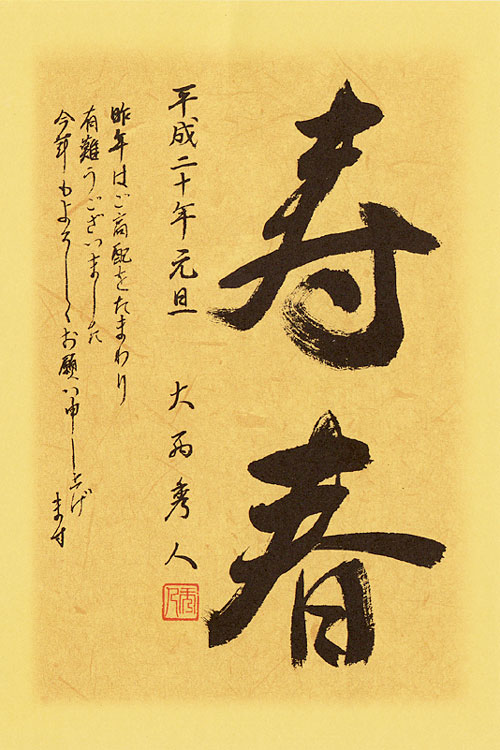 寿春
平成二十年元旦 大西秀人
昨年はご高配をたまわり
有難うございました
今年もよろしくお願い申し上げます